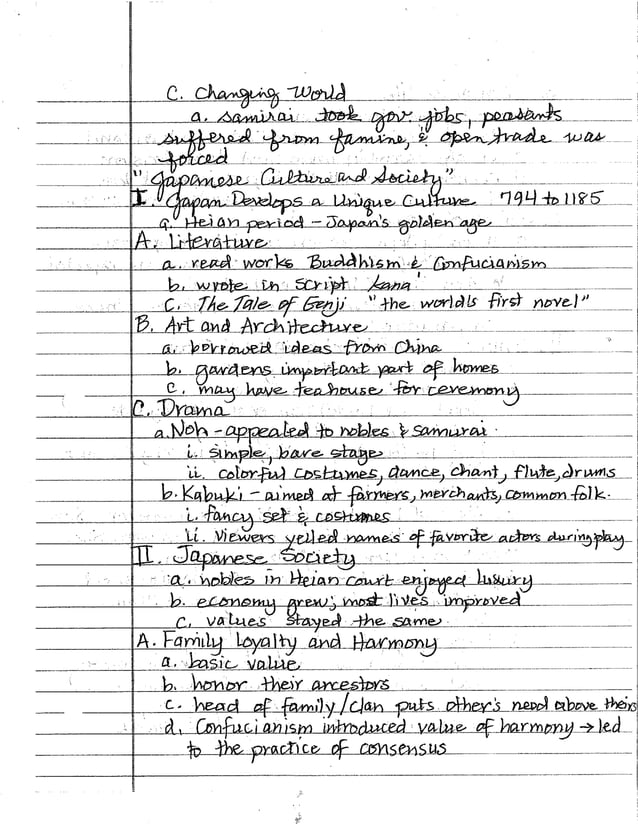 C. Changing World
a. samirai took gov jobs, peasants
suffered from famine, & open trade was
forced
"Japanese Culture and Society"
I. Japan Develops a Unique Culture 794 to 1185
a. Heian period - Japan's golden age
A. Literature
a. read works Buddhism & Confucianism
b. wrote in script 'kana'
c. The Tale of Genji "the world's first novel"
B. Art and Architecture
a. borrowed ideas from China
b. gardens important part of homes
c. may have teahouse for ceremony
C. Drama
a. Noh - appealed to nobles & samurai
i. simple, bare stage
ii. colorful costumes, dance, chant, flute, drums
b. Kabuki - aimed at farmers, merchants, common folk.
i. fancy set & costumes
ii. viewers yelled names of favorite actors during play
II. Japanese Society
a. nobles in Heian court enjoyed luxury
b. economy grew; most lives improved
c. values stayed the same
A. Family Loyalty and Harmony
a. basic value
b. honor their ancestors
c. head of family/clan puts other's need above theirs
d. Confucianism introduced value of harmony → led
to the practice of consensus